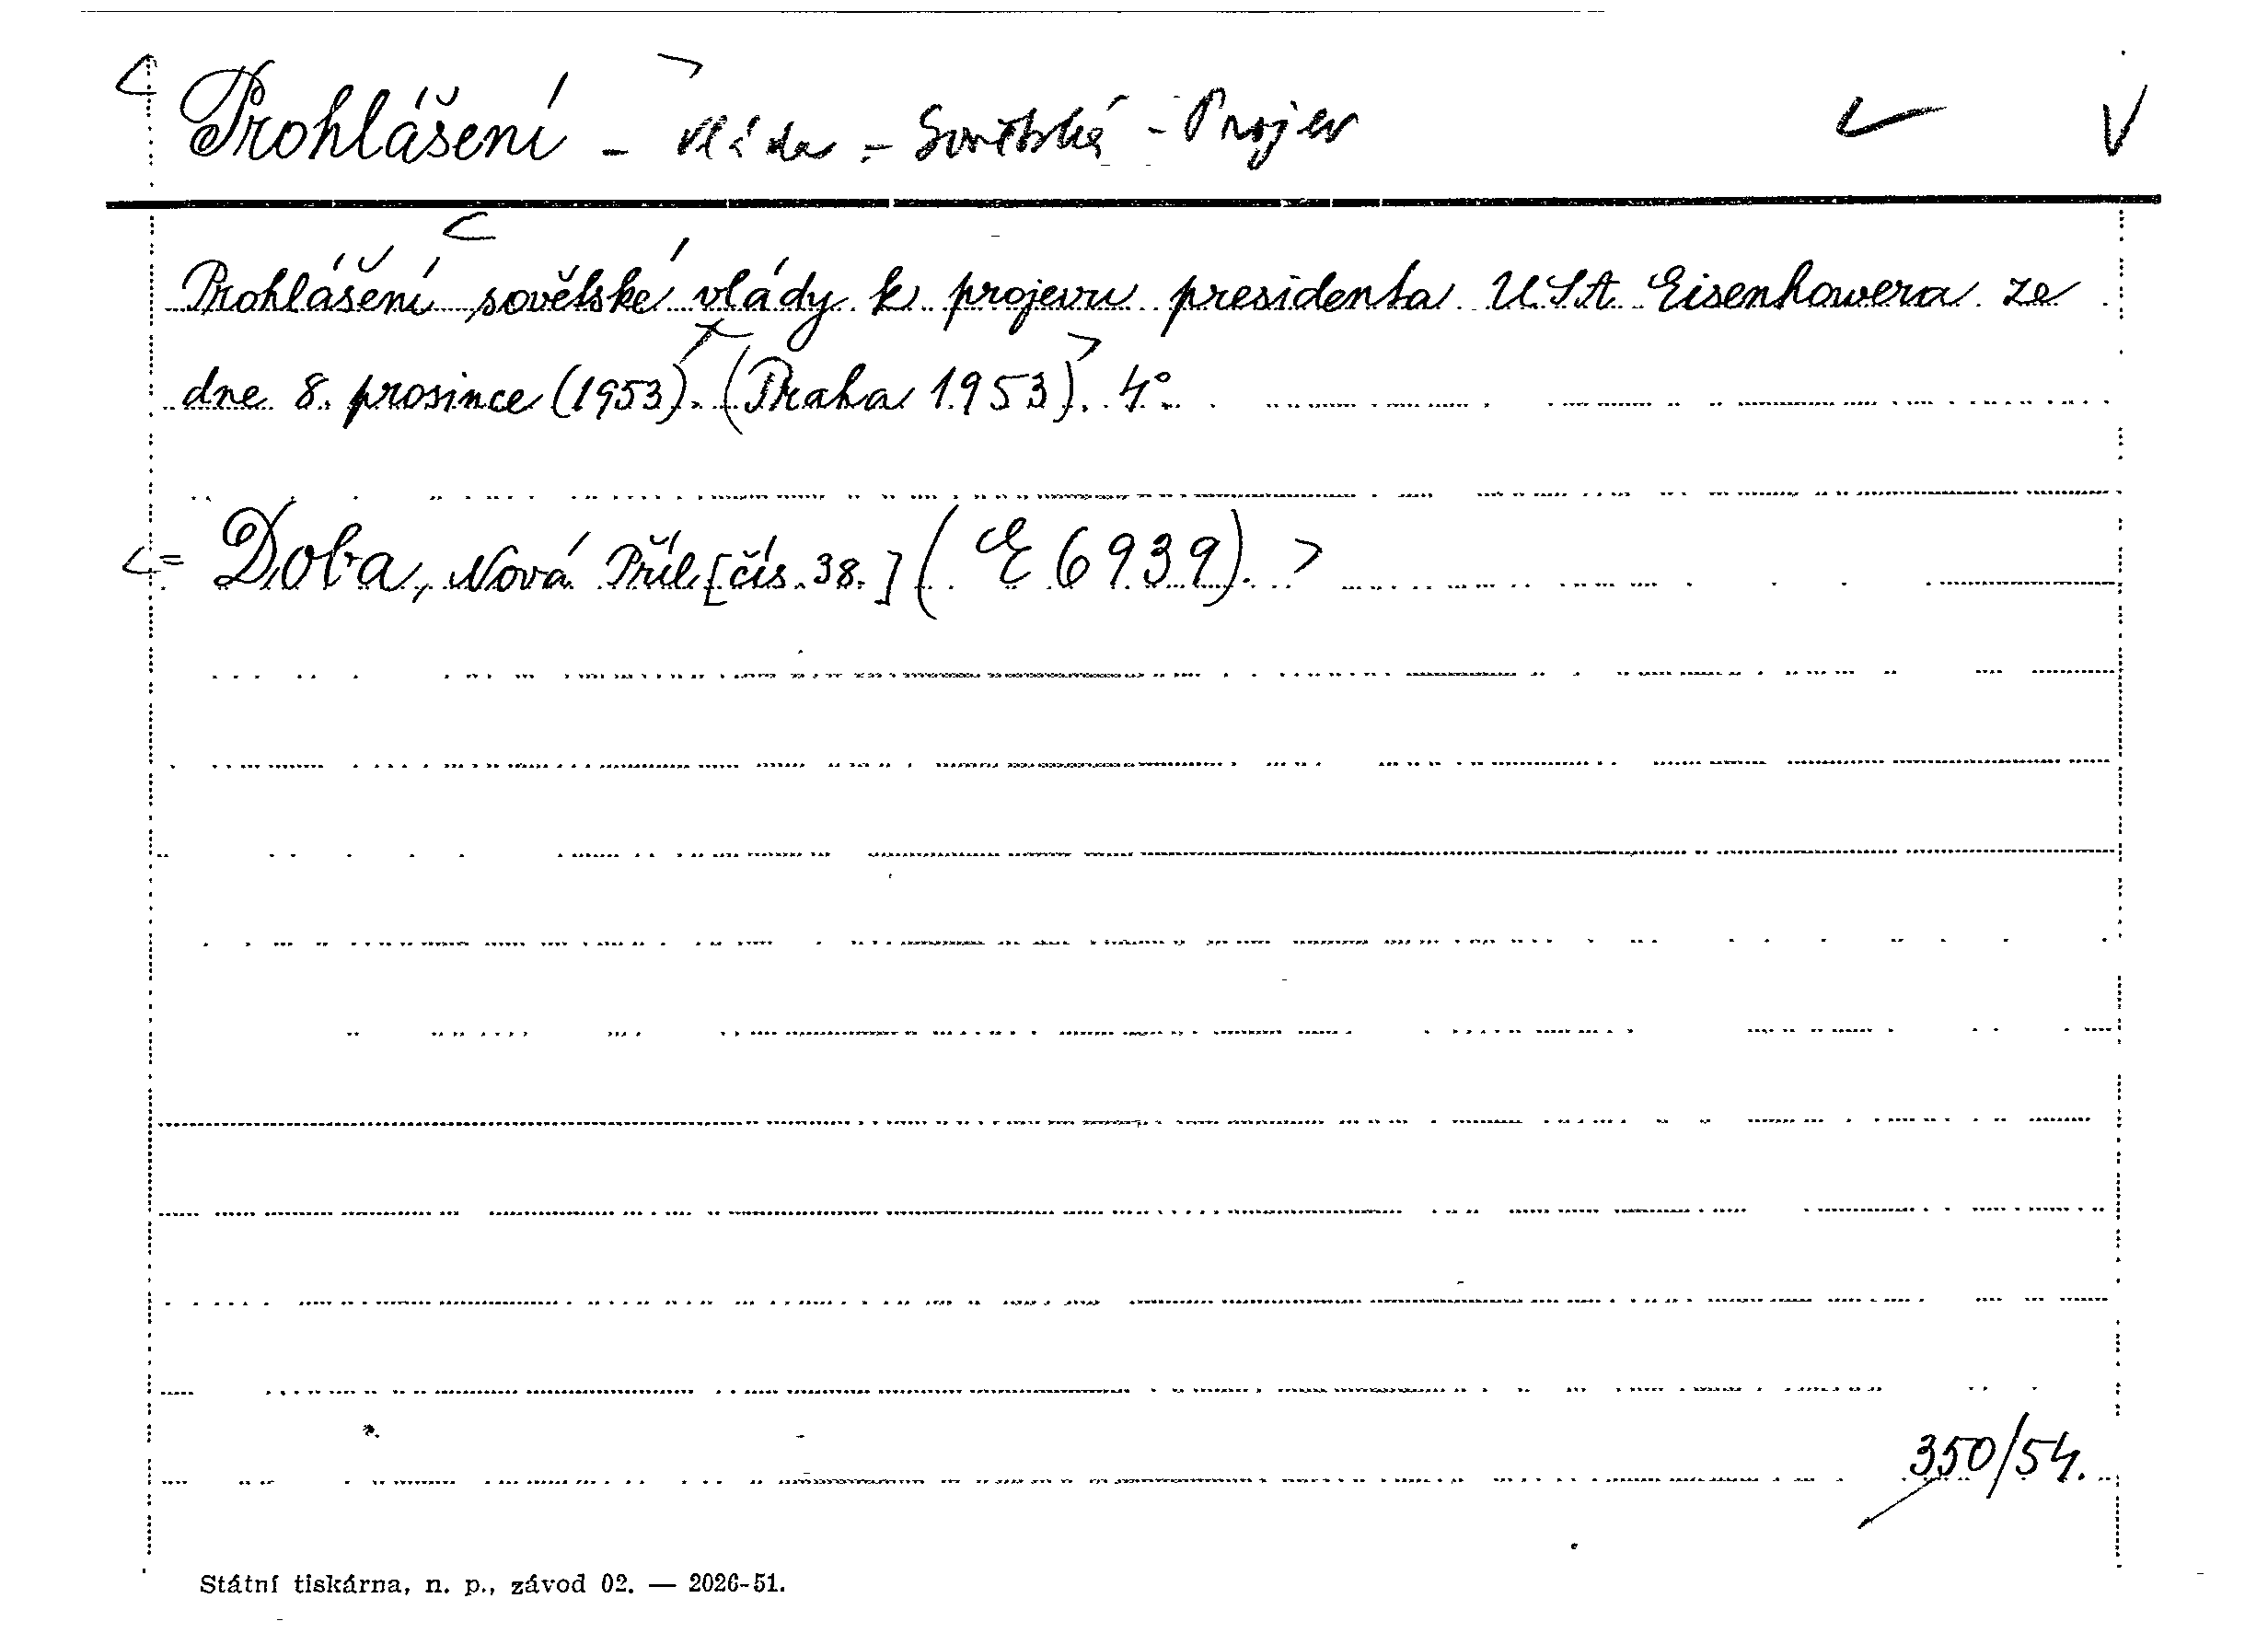 Prohlášení - vláda - Sovětská - Projev
Prohlášení sovětské vlády k projevu presidenta USA Eisenhowera ze
dne 8. prosince (1953). (Praha 1953). 4°.
= Doba, Nová Příl [čís. 38.] (E 6939).
350/54.
Státní tiskárna, n. p., závod 02. — 2026-51.